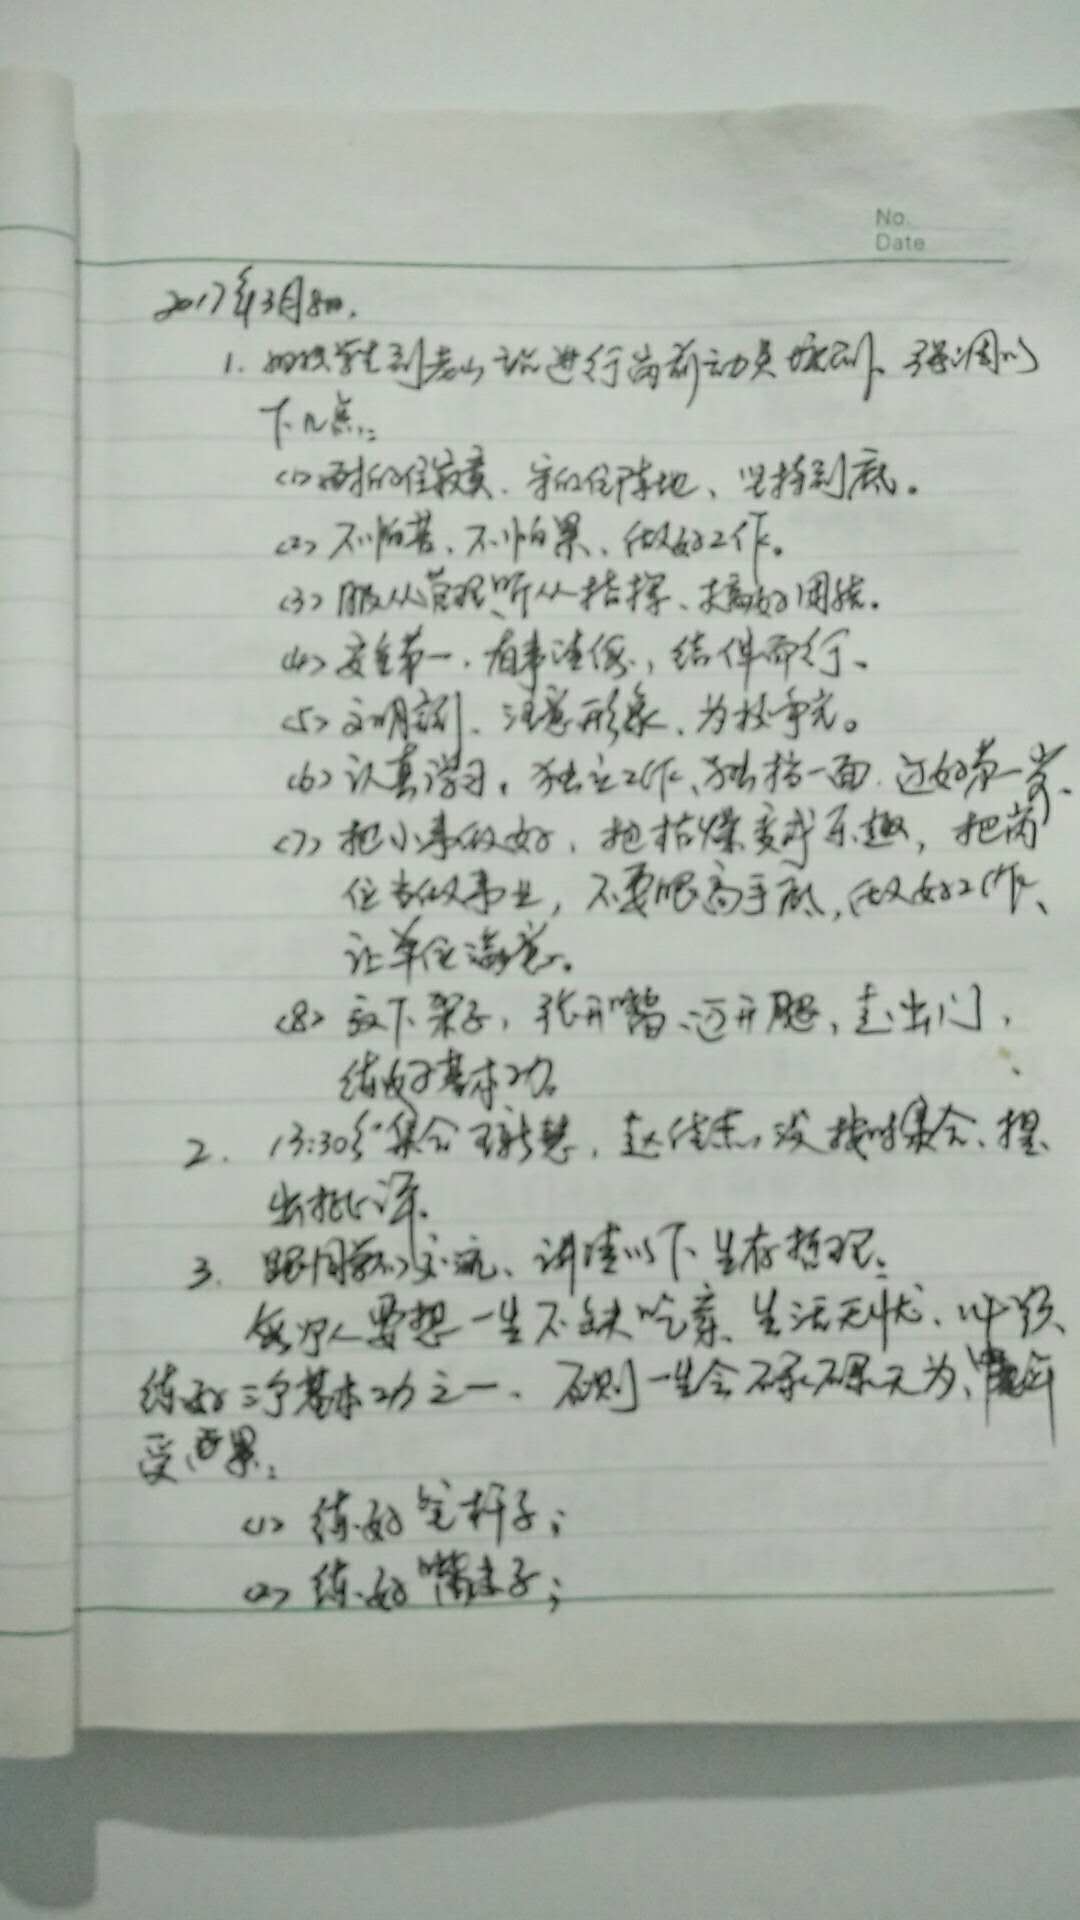 No.
Date
2017年3月8日.
1. 组织学生到老山站进行岗前动员培训、强调以
下几点:
(1)耐的住寂寞、守的住阵地、坚持到底。
(2)不怕苦、不怕累、做好工作。
(3)服从管理、听从指挥、搞好团结。
(4)安全第一、有事请假、结伴而行、
(5)文明 、注意形象、为校争光。
(6)认真学习，独立工作、独挡一面、过好第一 、
(7)把小事做好，把枯燥变成乐趣，把岗
位当做事业，不要眼高手底，做好工作、
让单位满意。
(8)放下架子，张开嘴、迈开腿，走出门，
练好基本功。
2. 13:30分集合 慧、赵佳 没按时集合、提
出批评.
3. 跟同学们交流、讲清以下生存哲理:
每个人要想一生不缺吃穿、生活无忧、必须
练好三个基本功之一、否则一生会 无为、
受 累:
(1) 练好笔杆子;
(2) 练好嘴皮子;